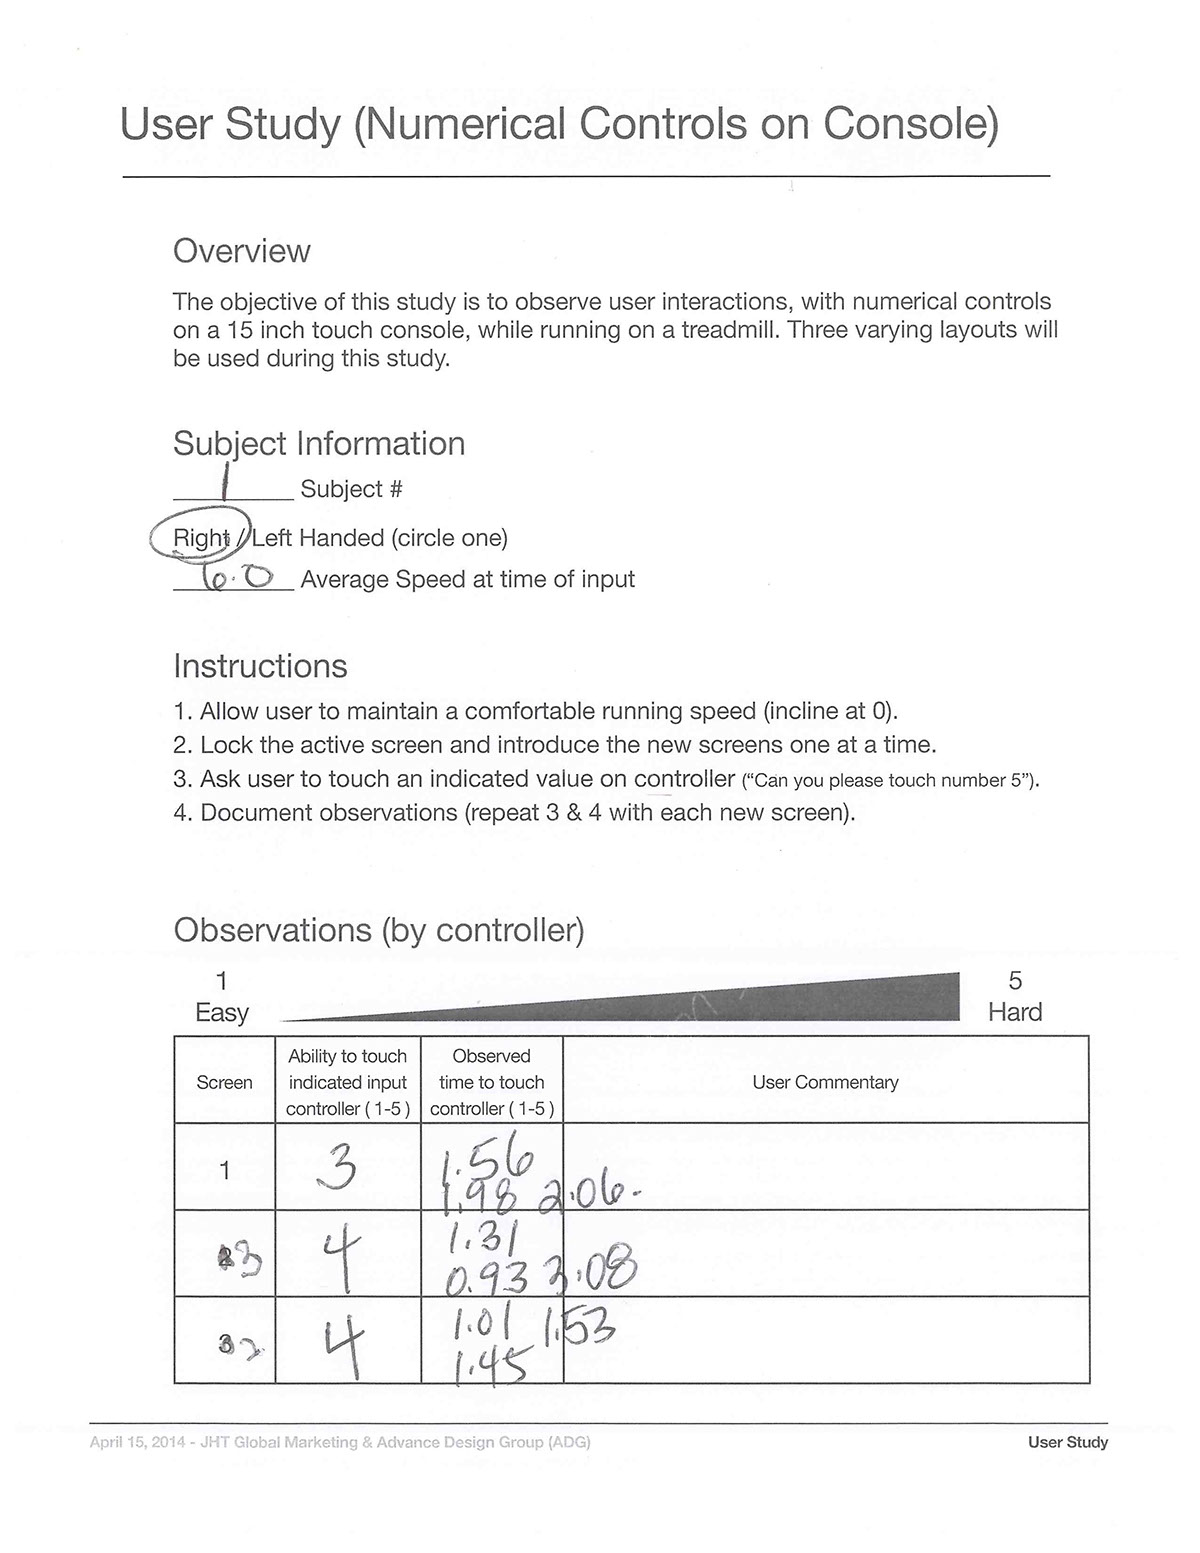 User Study (Numerical Controls on Console)
Overview
The objective of this study is to observe user interactions, with numerical controls
on a 15 inch touch console, while running on a treadmill. Three varying layouts will
be used during this study.
Subject Information
1 Subject #
Right / Left Handed (circle one)
6.0 Average Speed at time of input
Instructions
1. Allow user to maintain a comfortable running speed (incline at 0).
2. Lock the active screen and introduce the new screens one at a time.
3. Ask user to touch an indicated value on controller (“Can you please touch number 5”).
4. Document observations (repeat 3 & 4 with each new screen).
Observations (by controller)
1 5
Easy Hard
Screen
Ability to touch
indicated input
controller ( 1-5 )
Observed
time to touch
controller ( 1-5 )
User Commentary
1 3 1.56
1.98 2.06.
2 3 4 1.31
0.93 3.08
3 2 4 1.01 1.53
1.45
April 15, 2014 - JHT Global Marketing & Advance Design Group (ADG) User Study